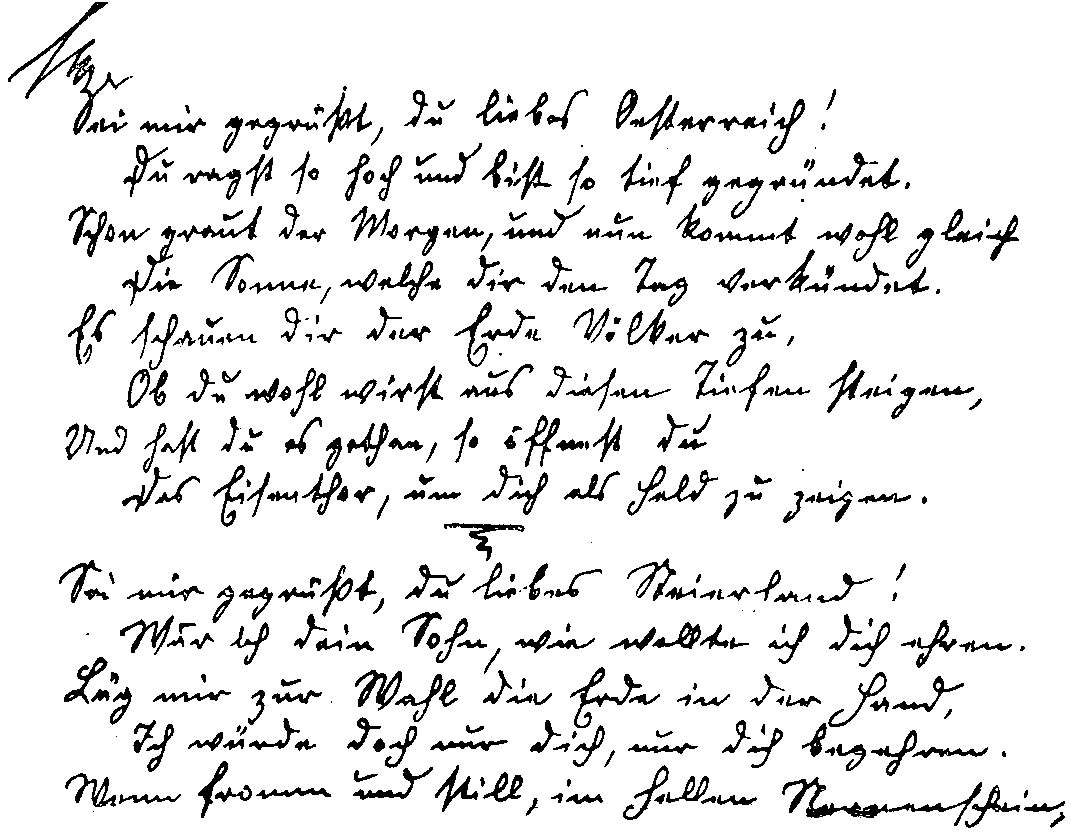 Sei mir gegrüßt, du liebes Oesterreich!
Du ragst so hoch und bist so tief gegründet.
Schon graut der Morgen, und nun kommt wohl gleich
Die Sonne, welche dir den Tag verkündet.
Es schauen dir der Erde Völker zu,
Ob du wohl wirst aus diesen Tiefen steigen,
Und hast du es gethan, so öffnest du
Das Eisenthor, um dich als Held zu zeigen.
Sei mir gegrüßt, du liebes Steierland!
Wär ich dein Sohn, wie wollte ich dich ehren.
Läg mir zur Wahl die Erde in der Hand,
Ich würde doch nur dich, nur dich begehren.
Wenn fromm und still, im hellen